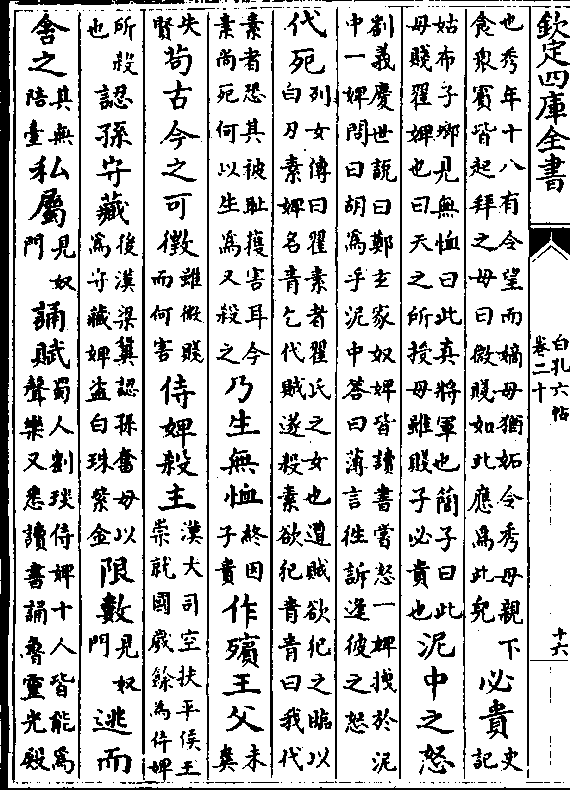 欽定四庫全書
白孔六帖
卷二十
十六
也秀年十八有令望而嫡母猶妬令秀母親下
食衆賓皆起拜之母曰微賤如此應為此兒
必貴
史
記
姑布子卿見無恤曰此真將軍也簡子曰此
母賤翟婢也曰天之所授母雖賤子必貴也
泥中之怒
劉義慶世說曰鄭玄家奴婢皆讀書嘗怒一婢拽於泥
中一婢問曰胡為乎泥中答曰薄言徃訴逢彼之怒
代死
列女傳曰翟素者翟氏之女也遭賊欲犯之臨以
白刃素婢名青乞代賊遂殺素欲犯青青曰我代
素者恐其被耻獲害耳今
素尚死何以生為又殺之
乃生無恤
終因
子貴
作殯王父
未
奠
失
賢
苟古今之可徵
雖微賤
而何害
侍婢殺主
漢大司空扶平侯王
崇就國歲餘為侍婢
所殺
也
認孫守藏
後漢梁冀認孫奮母以
為守藏婢盗白珠紫金
限數
見奴
門
逃而
舍之
其無
陪臺
私屬
見奴
門
誦賦
蜀人劉琰侍婢十人皆能為
聲樂又悉讀書誦魯靈光殿